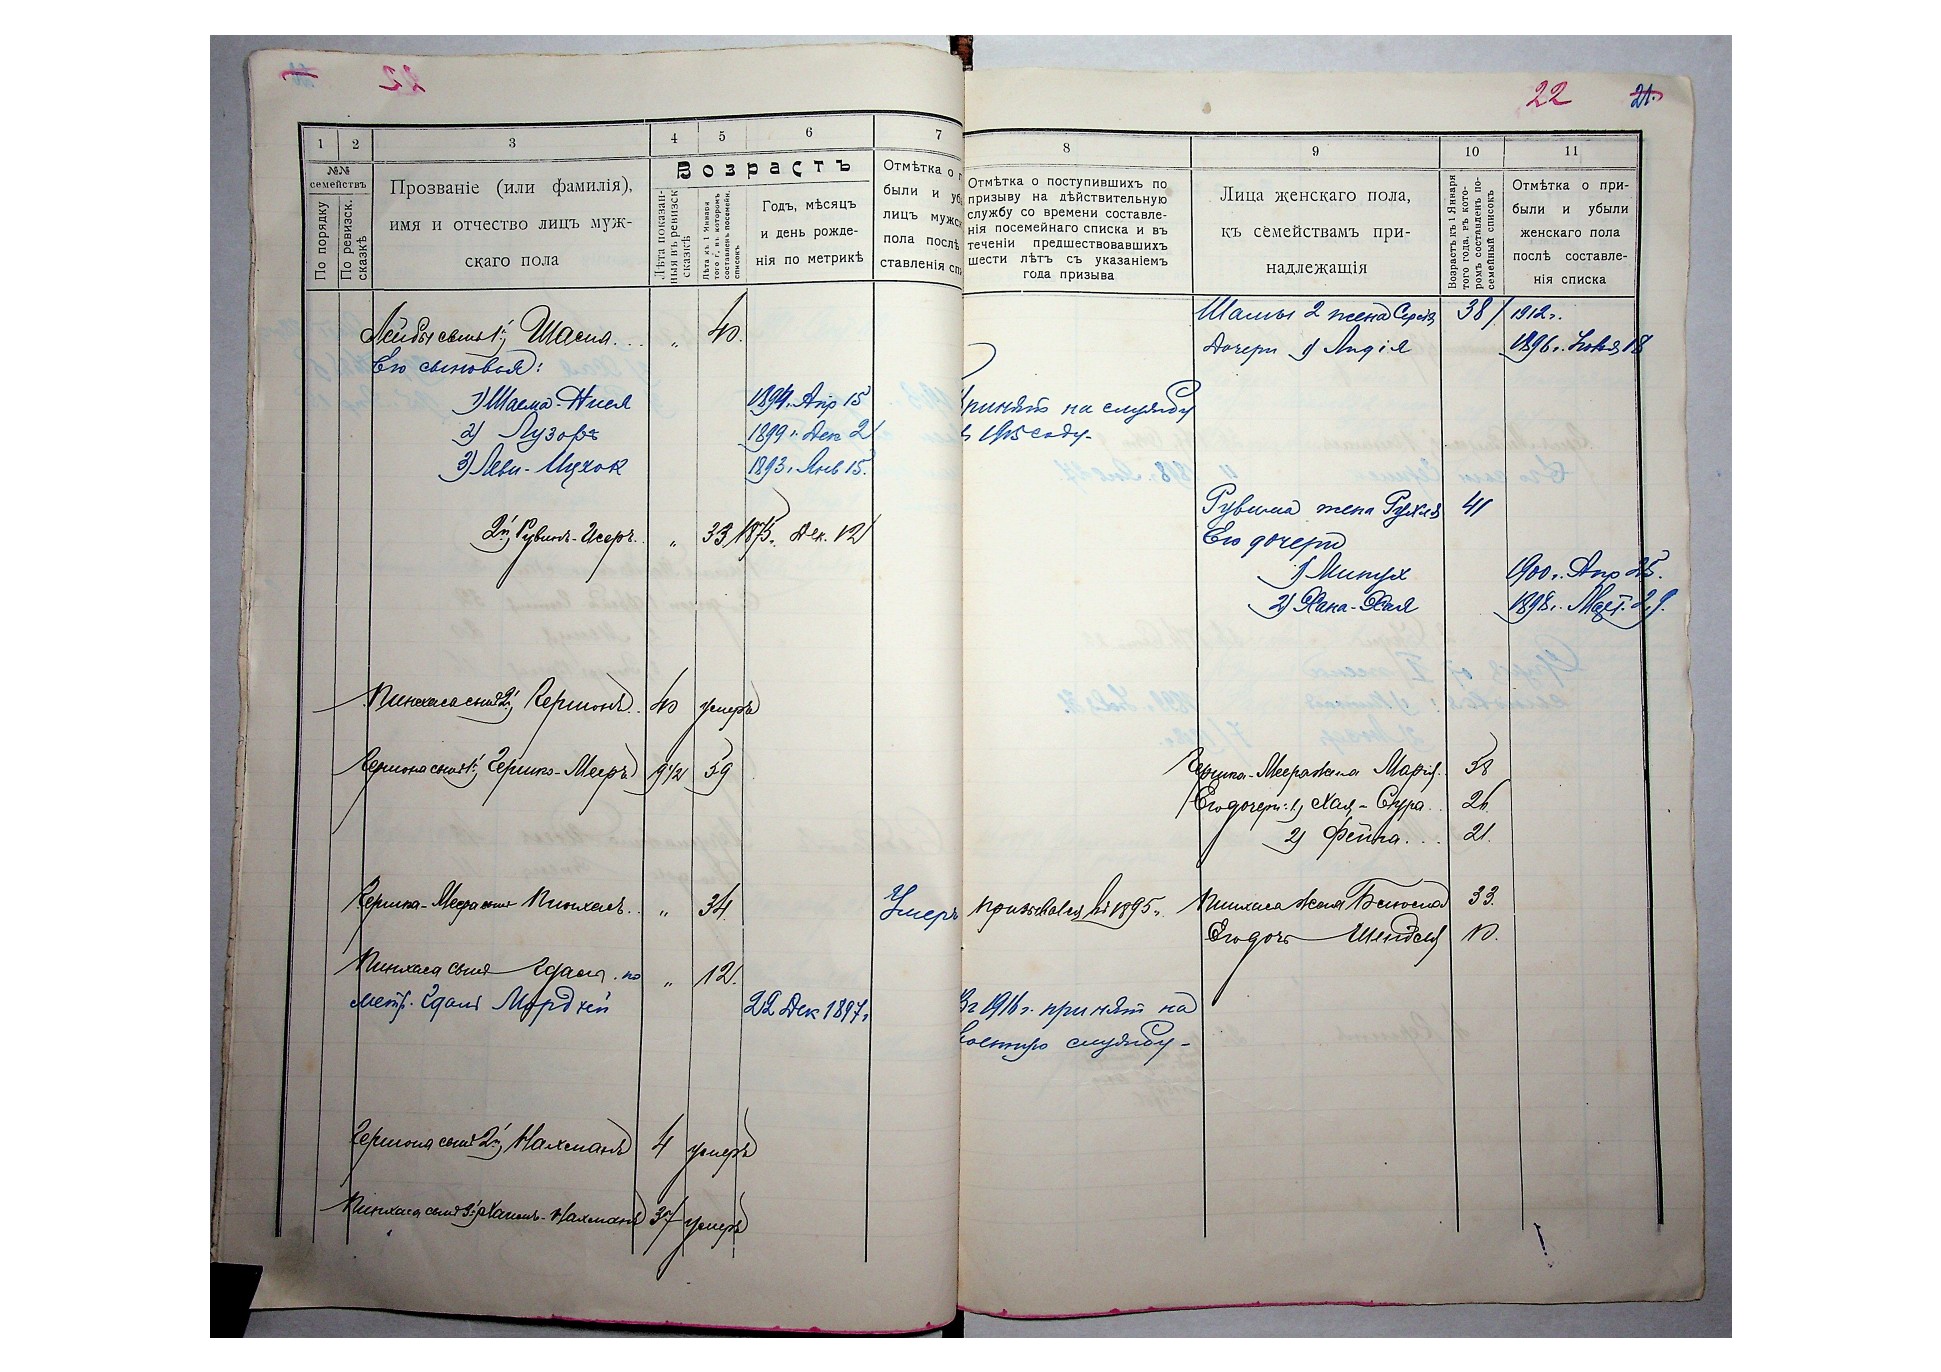 22
22 21.
1 2 3 4 5 6 7
8 9 10 11
№№ семействъ
По порядку
По ревизск. сказкѣ
Прозваніе (или фамилія),
имя и отчество лицъ муж-
скаго пола
Возрастъ
Лѣта показан-
ныя въ ревизск
сказкѣ
Лѣта къ 1 Января
того г., въ которомъ
составленъ посемейн.
списокъ.
Годъ, мѣсяцъ
и день рожде-
нія по метрикѣ
Отмѣтка о п
были и уб
лицъ мужск
пола послѣ
ставленія спи
Отмѣтка о поступившихъ по
призыву на дѣйствительную
службу со времени составле-
нія посемейнаго списка и въ
теченіи предшествовавшихъ
шести лѣтъ съ указаніемъ
года призыва
Лица женскаго пола,
къ семействамъ при-
надлежащія
Возрастъ къ 1 Января
того года, въ кото-
ромъ составленъ по-
семейный списокъ
Отмѣтка о при-
были и убыли
женскаго пола
послѣ составле-
нія списка
Шамы 2 жена 38 1912г.
Лейбы сынъ 1й Шасия... „ 40.
Дочери 1) Лидія 1896г. 18
Его сыновья:
1) 1894. Апр 15 принятъ на службу
2) Лузоръ 1899 г. Дек 2 1915 году.
3) Леви- 1893г. Янв 15.
Рувима жена Рухля 41
2й Рувинъ-Исеръ. „ 33 1875г. Дек. 12
Его дочери
1) Минух 1900г. Апр 25.
2) Хана-Хая 1898г. 29.
Пинхаса сынъ 2й Гершонъ.. 40 умеръ
Гершона сынъ 1й Гершко-Мееръ 9 1/2 59 Гершка-Меера жена Марія. 58
Его дочери: 1, Хая-Сура.. 24.
2) Фейга... 21.
Гершка-Меера сынъ Пинхасъ.. „ 34. Умеръ призывался въ 1895г. Пинхаса жена 33.
Его дочь Шейдля 10.
Пинхаса сынъ . по „ 12.
метр. Мордхей 22 Дек 1897г Въ 1916г. принятъ на
военную службу-
Гершона сынъ 2й Нахманъ 4 умеръ
Пинхаса сынъ 3й Хаимъ-Нахманъ 37 умеръ